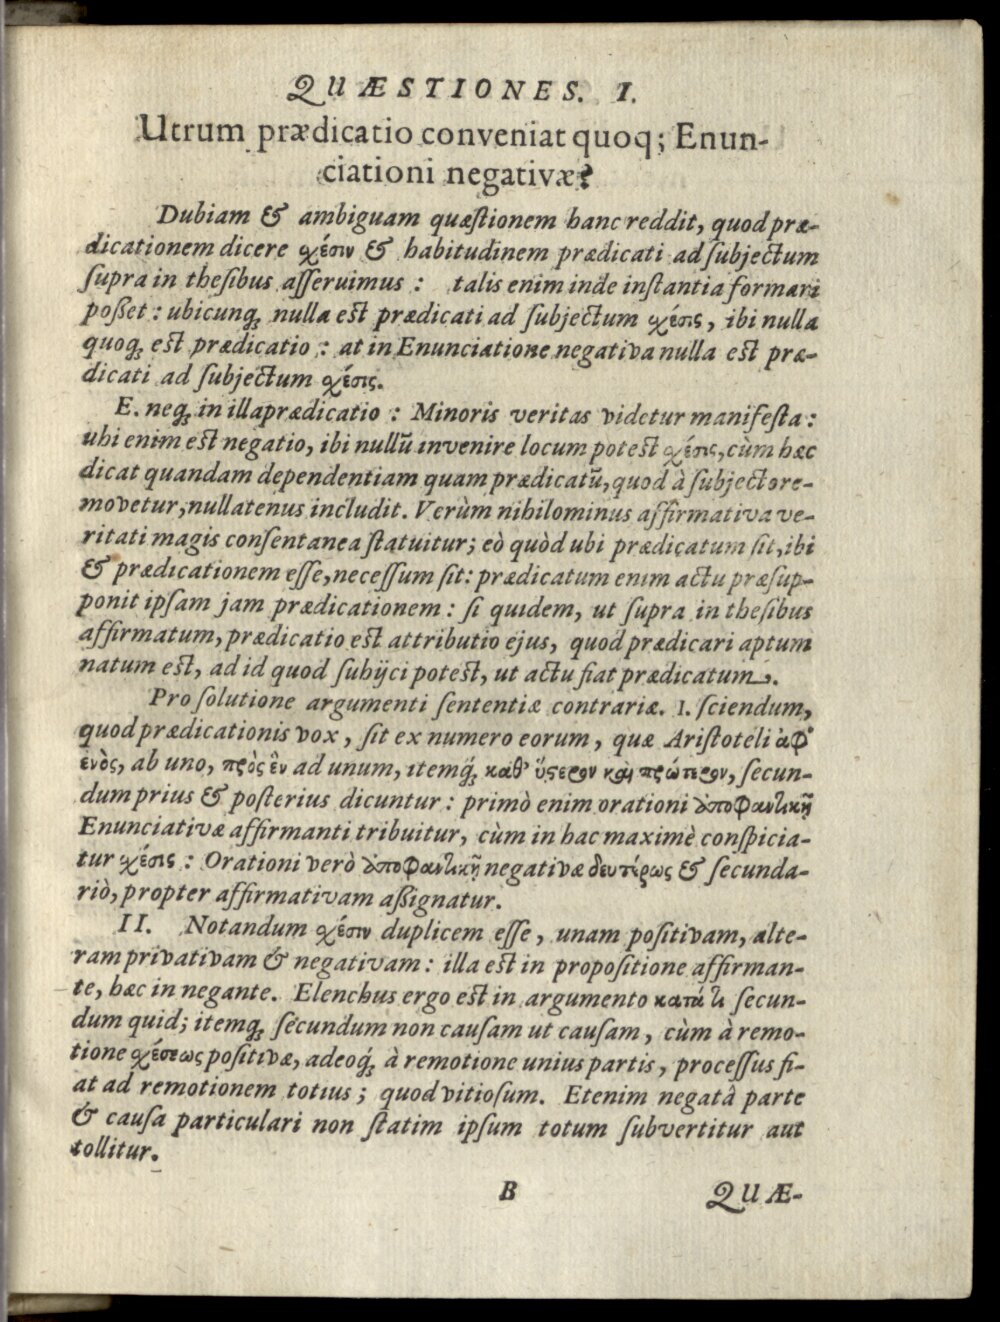 QUÆSTIONES. I.
Utrum prædicatio conveniat quoq; Enun-
ciationi negativæ?
Dubiam & ambiguam quæstionem hanc reddit, quod præ-
dicationem dicere χέσιν & habitudinem prædicati ad subjectum
supra in thesibus asseruimus : talis enim inde instantia formari
posset : ubicunq; nulla est prædicati ad subjectum χέσις, ibi nulla
quoq; est prædicatio : at in Enunciatione negativa nulla est præ-
dicati ad subjectum χέσις.
E. neq; in illa prædicatio : Minoris veritas videtur manifesta :
uhi enim est negatio, ibi nullũ invenire locum potest χέσις, cùm hæc
dicat quandam dependentiam quam prædicatũ, quod à subjecto re-
movetur, nullatenus includit. Verùm nihilominus affirmativa ve-
ritati magis consentanea statuitur; eò quòd ubi prædicatum sit, ibi
& prædicationem esse, necessum sit: prædicatum enim actu præsup-
ponit ipsam jam prædicationem : si quidem, ut supra in thesibus
affirmatum, prædicatio est attributio ejus, quod prædicari aptum
natum est, ad id quod subijci potest, ut actu fiat prædicatum.
Pro solutione argumenti sententiæ contrariæ. 1. sciendum,
quod prædicationis vox, sit ex numero eorum, quæ Aristoteli ἀφ'
ἑνὸς, ab uno, πρὸς ἓν ad unum, itemq́; καθ' ὕστερον καὶ πρώτερον, secun-
dum prius & posterius dicuntur : primò enim orationi ἀποφαντικῇ
Enunciativæ affirmanti tribuitur, cùm in hac maximè conspicia-
tur χέσις : Orationi verò ἀποφαντικῇ negativæ δευτέρως & secunda-
riò, propter affirmativam assignatur.
II. Notandum χέσιν duplicem esse, unam positivam, alte-
ram privativam & negativam : illa est in propositione affirman-
te, hæc in negante. Elenchus ergo est in argumento κατά τι secun-
dum quid; itemq; secundum non causam ut causam, cùm à remo-
tione χέσεως positivæ, adeoq́; à remotione unius partis, processus fi-
at ad remotionem totius ; quod vitiosum. Etenim negatâ parte
& causa particulari non statim ipsum totum subvertitur aut
tollitur.
B QUÆ-